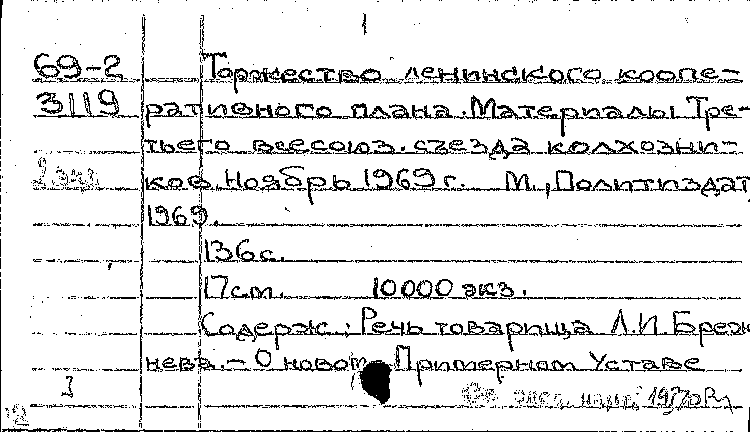 1
69-2 Торжество ленинского коопе-
3119 ративного плана. Материалы Тре-
тьего всесоюз. съезда колхозни-
2 экз ков. Ноябрь 1969 г. М., Политиздат,
1969.
136 с.
17 см. 10000 экз.
Содерж.: Речь товарища Л.И. Бреж
нева. – О новом Примерном Уставе
3
12